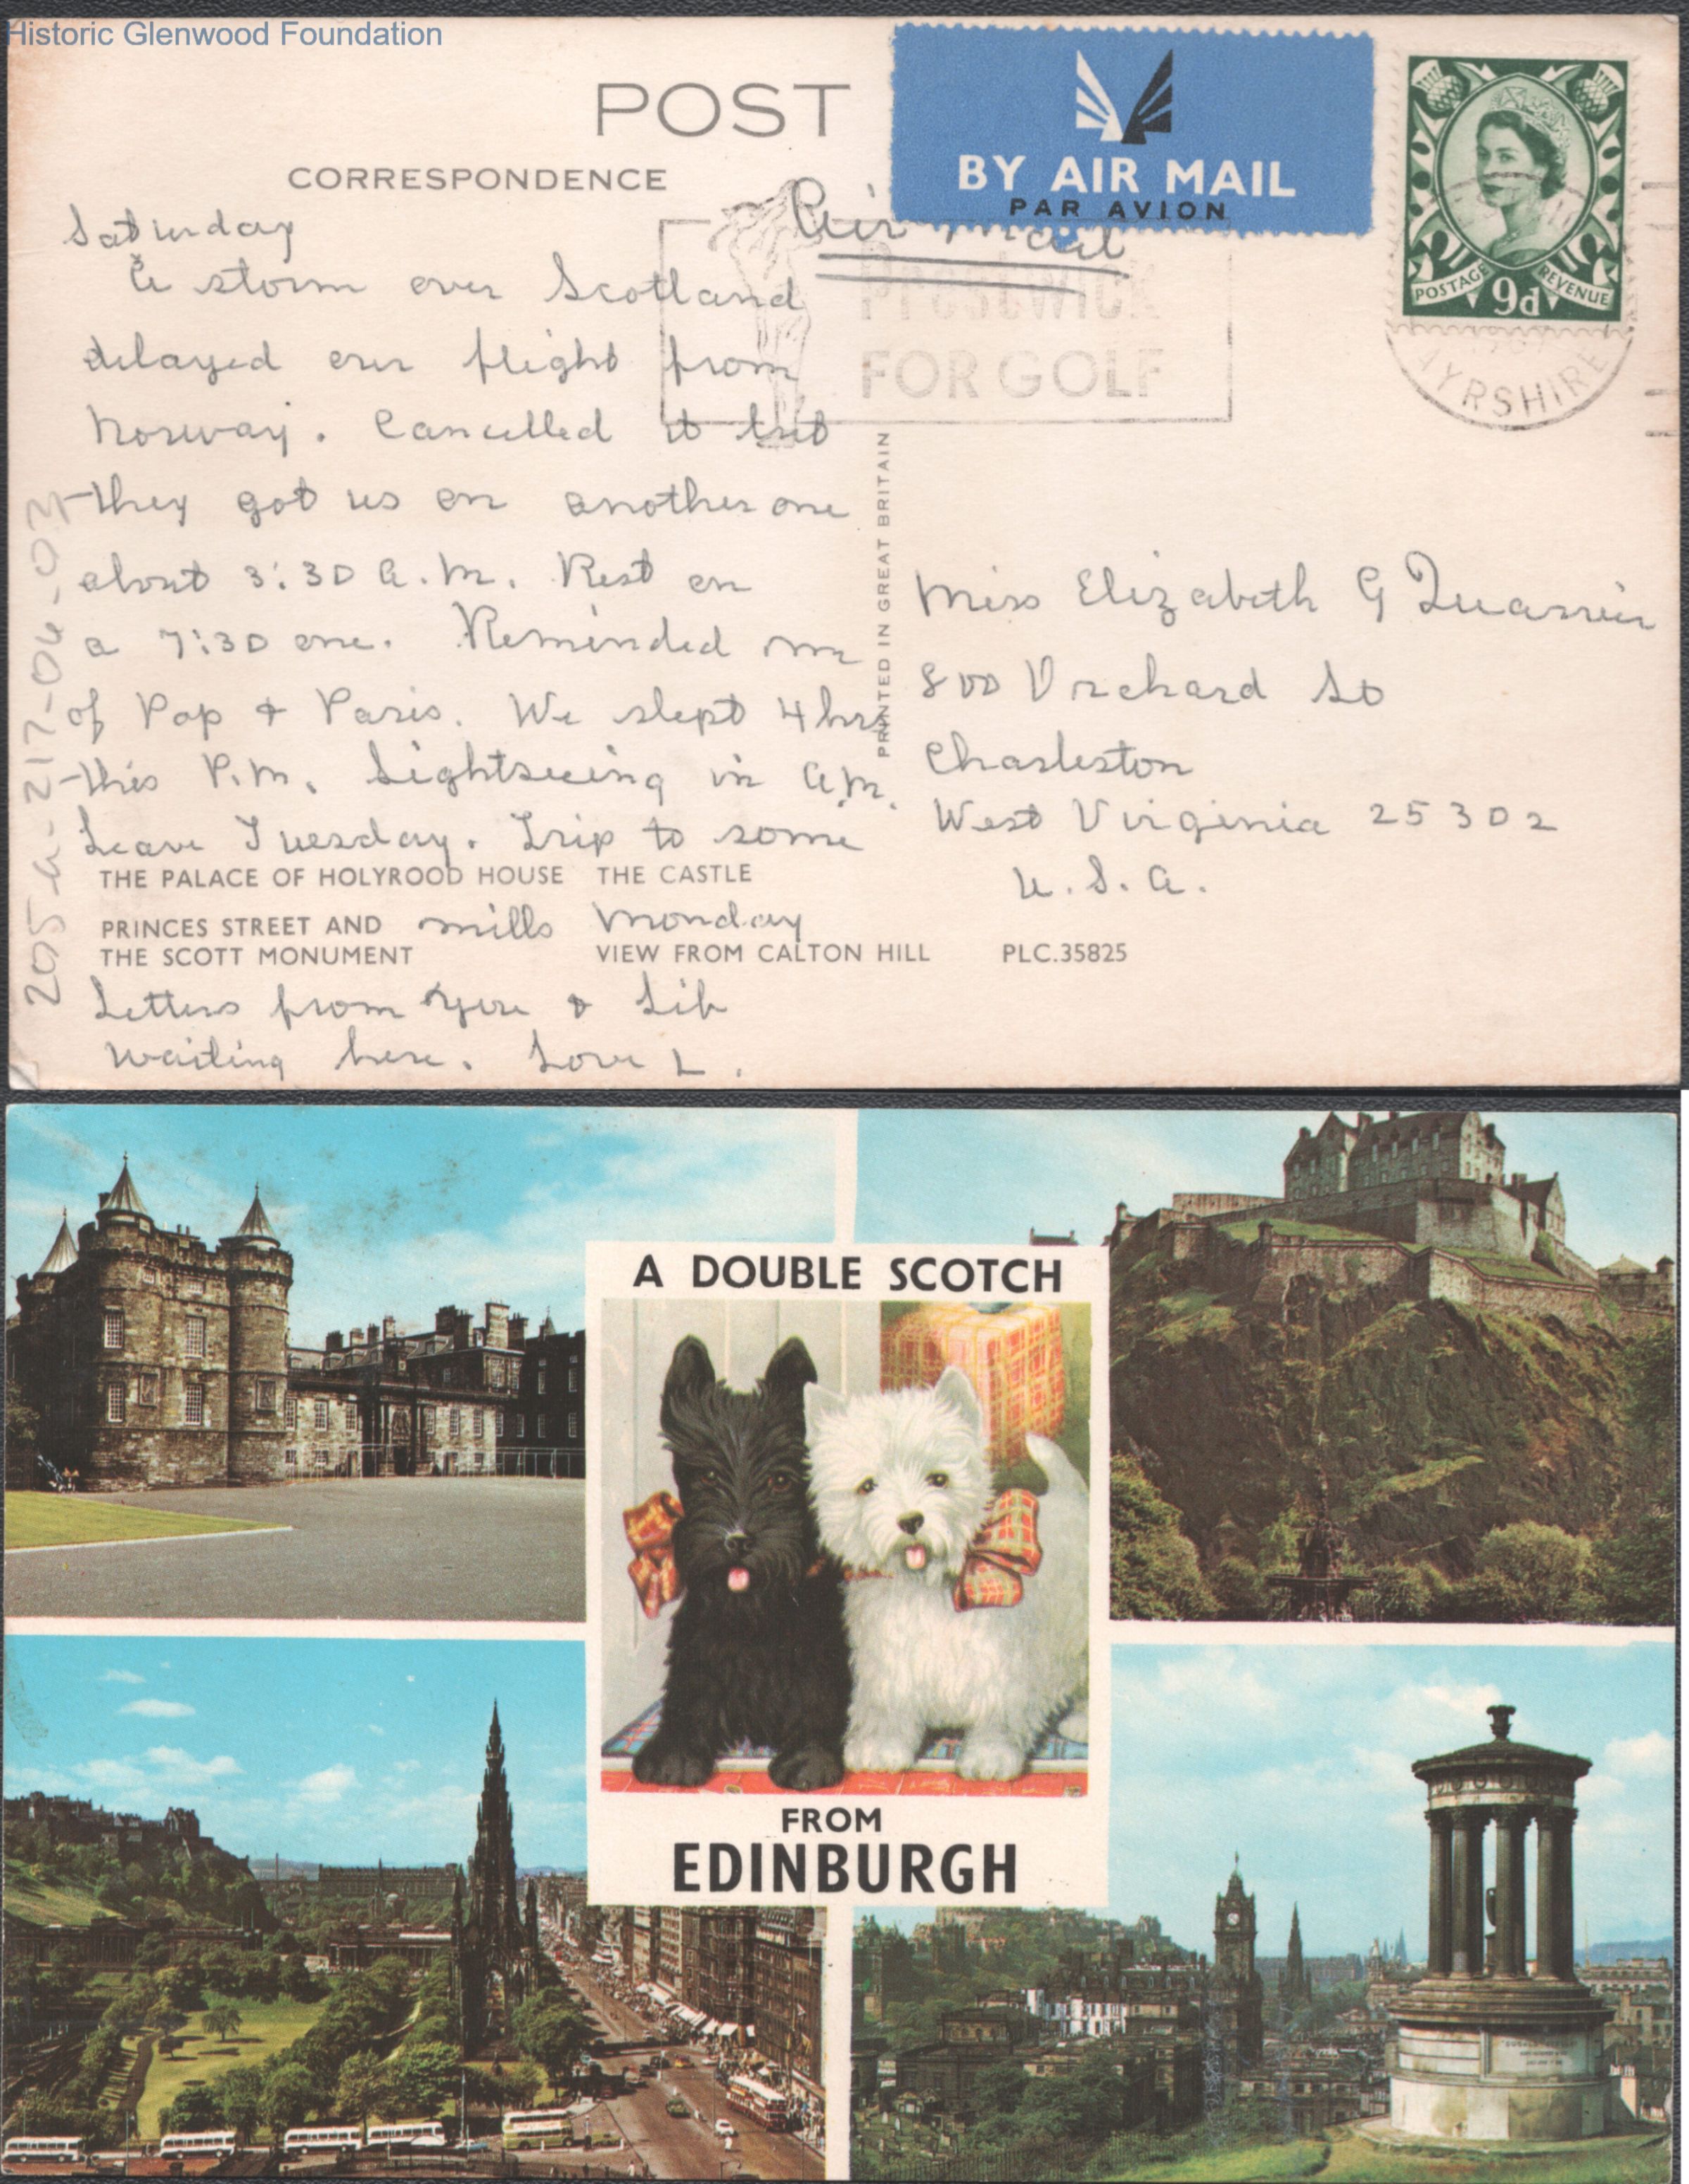 Historic Glenwood Foundation
POST
CORRESPONDENCE
BY AIR MAIL
PAR AVION
POSTAGE 9d REVENUE
Air Mail
Prestwick
FOR GOLF
AYRSHIRE
Saturday
A storm over Scotland
delayed our flight from
Norway. Cancelled it but
they got us on another one
about 3:30 A.M. Rest on
a 7:30 one. Reminded me
of Pop & Paris. We slept 4 hrs
this P.M. Sightseeing in A.M.
Leave Tuesday. Trip to some
mills Monday
Letters from you & Lib
waiting here. Love L.
THE PALACE OF HOLYROOD HOUSE THE CASTLE
PRINCES STREET AND
THE SCOTT MONUMENT VIEW FROM CALTON HILL PLC.35825
PRINTED IN GREAT BRITAIN
Miss Elizabeth G Quarrier
800 Orchard St
Charleston
West Virginia 25302
U.S.A.
A DOUBLE SCOTCH
FROM
EDINBURGH